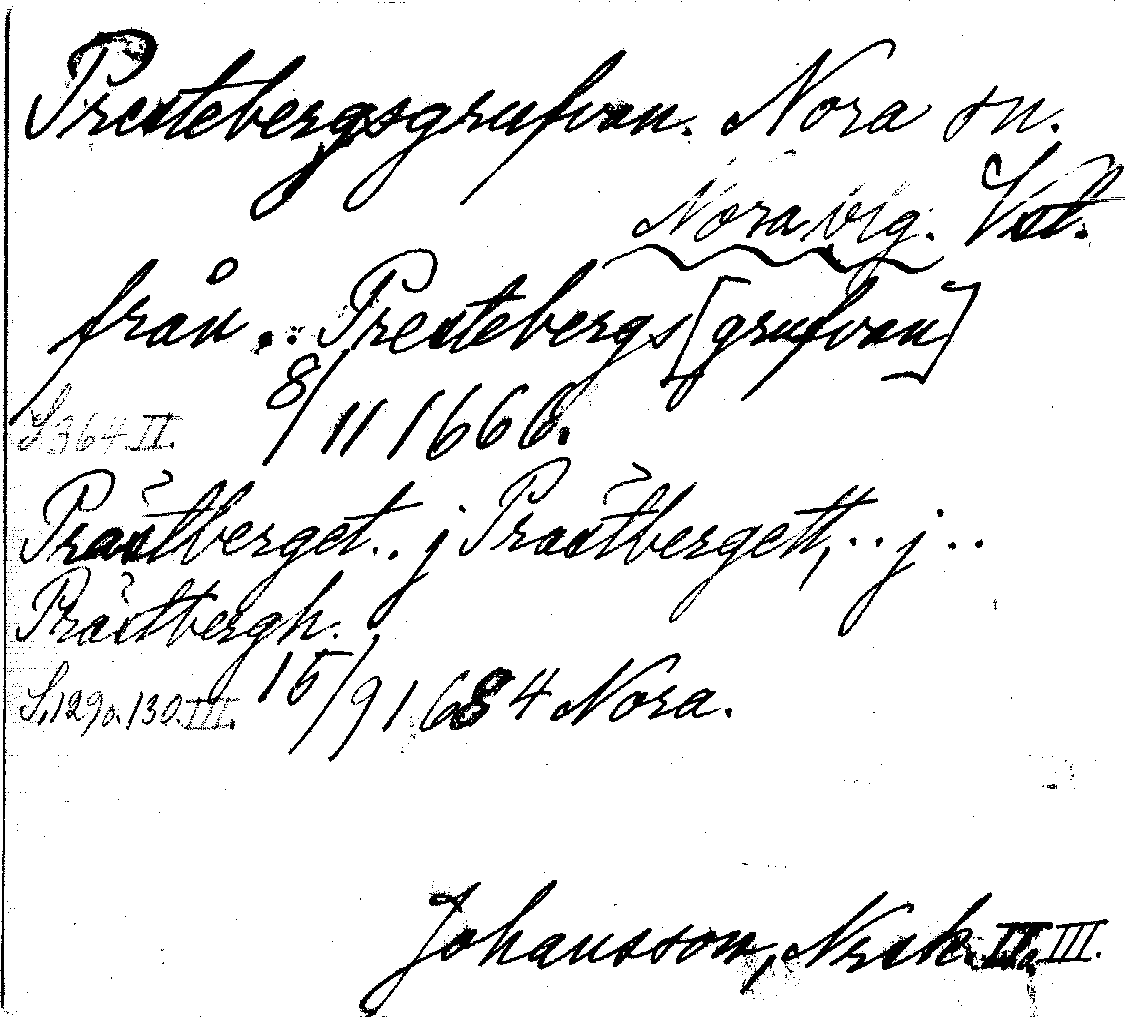 Prestebergsgrufvan. Nora sn.
Nora blg. Vstl.
från .. Prestebergs [grufvan]
S. 364 II. 8/11 1666.
Prästberget.. j Prästbergett, .. j ..
Prästbergh.
S. 129 o. 130 III. 15/9 1684 Nora.
Johansson, Nork. II o. III.